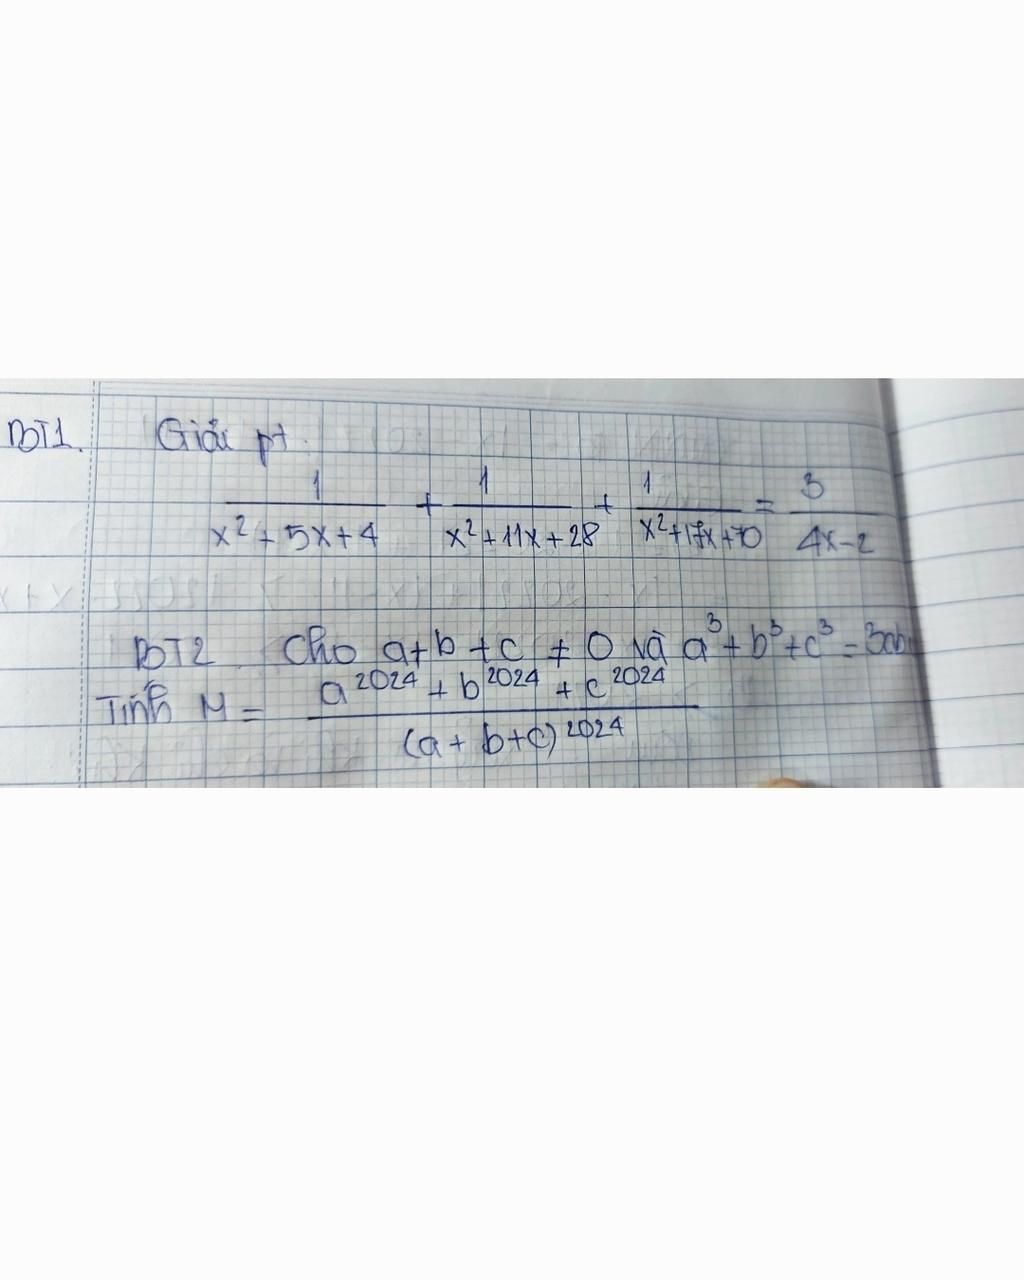 BT1. Giải pt.
1/(x² + 5x + 4) + 1/(x² + 11x + 28) + 1/(x² + 17x + 70) = 3/(4x - 2)
BT2. Cho a + b + c ≠ 0 và a³ + b³ + c³ = 3ab
Tính M = (a²⁰²⁴ + b²⁰²⁴ + c²⁰²⁴)/(a + b + c)²⁰²⁴